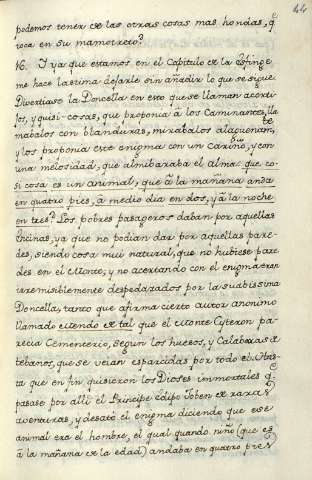 44
podemos tener de las otras cosas mas hondas, q.
toca en su mamotreto?
16. I ya que estamos en el Capitulo de la Esfinge
me hace lastima dejarle sin añadir lo que se sigue.
Divertiase la Doncella en esto que se llaman acerti-
los, y quisi-cosas, que proponia à los Caminantes, lla
mabalos con blanduras, mirabalos alagueñam.te
y los proponia este enigma con un cariño, y con
una melosidad, que almibaraba el alma: que co-
si cosa es un animal, que à la mañana anda
en quatro pies, à medio dia en dos, y à la noche
en tres? Los pobres pasageros daban por aquellas
, ya que no podian dar por aquellas pare-
des, siendo cosa mui natural, que no hubiese pare
des en el Monte, y no acertando con el enigma eran
irremisiblemente despedazados por la suabissima
Doncella, tanto que afirma cierto autor anonimo
llamado de tal que el Monte Cyteron pa-
recia Cementerio, segun los huesos, y Calaberas de
tebanos, que se veian esparcidas por todo el. Has-
ta que en fin quisieron los Dioses inmortales q.e
pasase por alli el Principe Edipo Joben de raras
aventuras, y desató el enigma diciendo que ese
animal era el hombre, el qual quando niño (que es
à la mañana de la edad) andaba en quatro pies